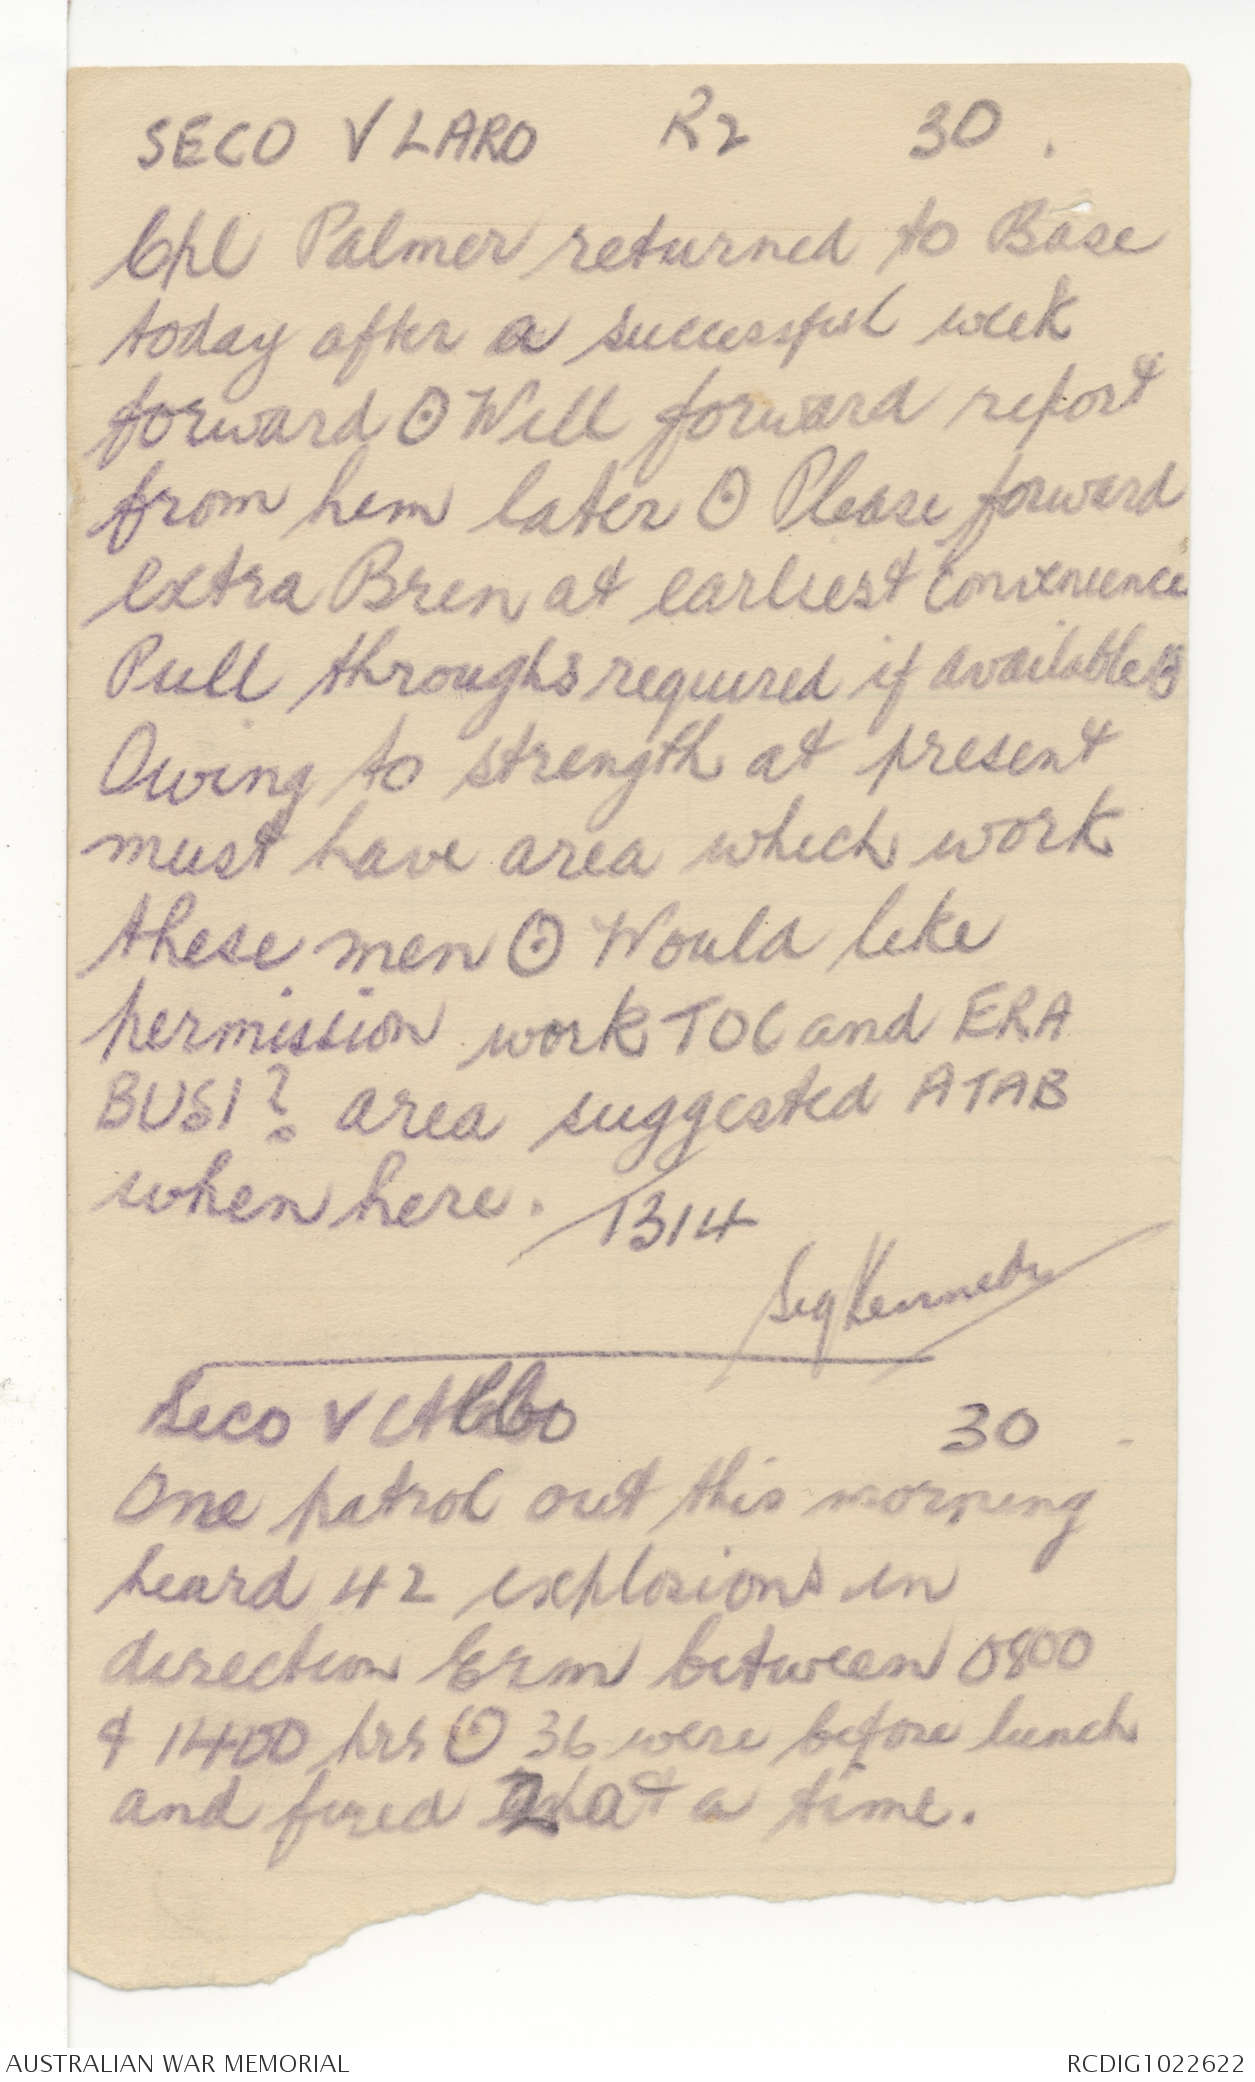 SECO V LARO R2 30.
Cpl Palmer returned to Base
today after a successful week
forward ⊙ Will forward report
from him later ⊙ Please forward
extra Bren at earliest convenience
Pull throughs required if available ⊙
Owing to strength at present
must have area which work
these men ⊙ Would like
permission work TOC and ERA
BUSI? area suggested ATAB
when here. / 1314
Sig Kennedy
Seco V 30
One patrol out this morning
heard 42 explosions in
direction Erm between 0800
& 1400 hrs ⊙ 36 were before lunch
and fired 2 at a time.
AUSTRALIAN WAR MEMORIAL RCDIG1022622